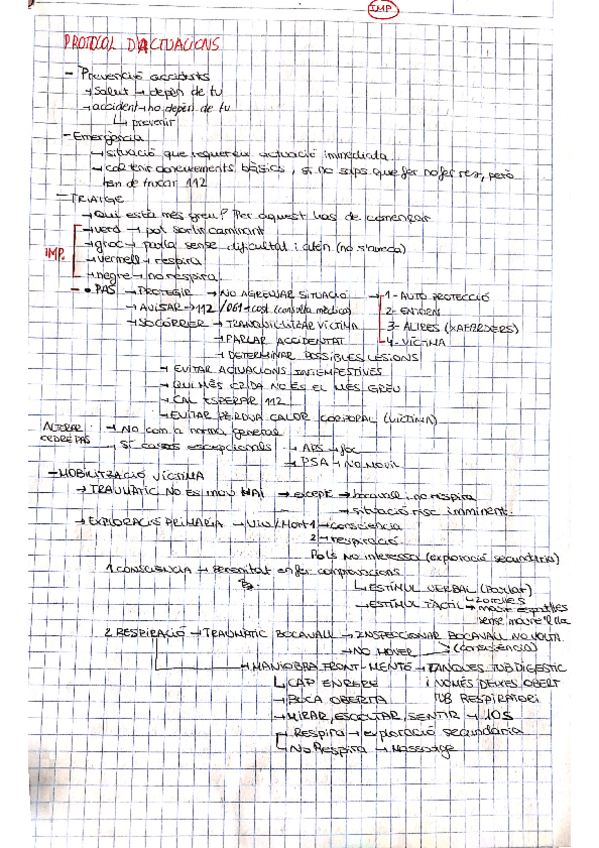 IMP
PROTOCOL D'ACTUACIONS
- Prevenció accidents
→ salut → depèn de tu
→ accident → no depèn de tu
↳ prevenir
- Emergència
→ situació que requereix actuació immediata
→ cal tenir coneixements bàsics, si no saps que fer no fer res, però
han de trucar 112
- TRIATGE
→ Qui està més greu? Per aquest has de començar
→ verd → pot sortir caminant
→ groc → parla sense dificultat i alén
IMP. → vermell → respira
→ negre → no respira
- • PAS → PROTEGIR → NO AGREUJAR SITUACIÓ → 1- AUTO PROTECCIÓ
→ AVISAR → 112 / 061 → cost (consulta mèdica) 2- ENTORN
→ SOCÓRRER → TRANQUILITZAR VÍCTIMA 3- ALTRES (XAFARDERS)
→ PARLAR ACCIDENTAT 4- VÍCTIMA
→ DETERMINAR POSSIBLES LESIONS
→ EVITAR ACTUACIONS INTEMPESTIVES
→ QUI MÉS CRIDA NO ÉS EL MÉS GREU
→ CAL ESPERAR 112
→ EVITAR PÈRDUA CALOR CORPORAL (VÍCTIMA)
ALTERAR → No com a norma general
ORDRE PAS → Sí casos excepcionals → APS → foc
→ PSA → NO MÒVIL
- MOBILITZACIÓ VÍCTIMA
→ TRAUMÀTIC NO ES MOU MAI → excepte → bocavall i no respira
→ situació risc imminent.
→ EXPLORACIÓ PRIMÀRIA → Viu/Mort 1 → consciència
2 → respiració
Pols no interessa (exploració secundària)
1 CONSCIÈNCIA → serenitat en fer comprovacions
↳ ESTÍMUL VERBAL (Parlar)
→ ESTÍMUL TÀCTIL → moure espatlles
sense moure'l
2. RESPIRACIÓ → TRAUMÀTIC BOCAVALL → INSPECCIONAR BOCAVALL NO VOLTA
→ NO MOURE (consciència)
→ MANIOBRA FRONT-MENTÓ → TANQUES TUB DIGESTIC
↳ CAP ENRERE i NOMÉS DEIXES OBERT
→ BOCA OBERTA TUB RESPIRATORI
→ MIRAR, ESCOLTAR, SENTIR → 10S
→ Respira → exploració secundària
→ No Respira → Massatge